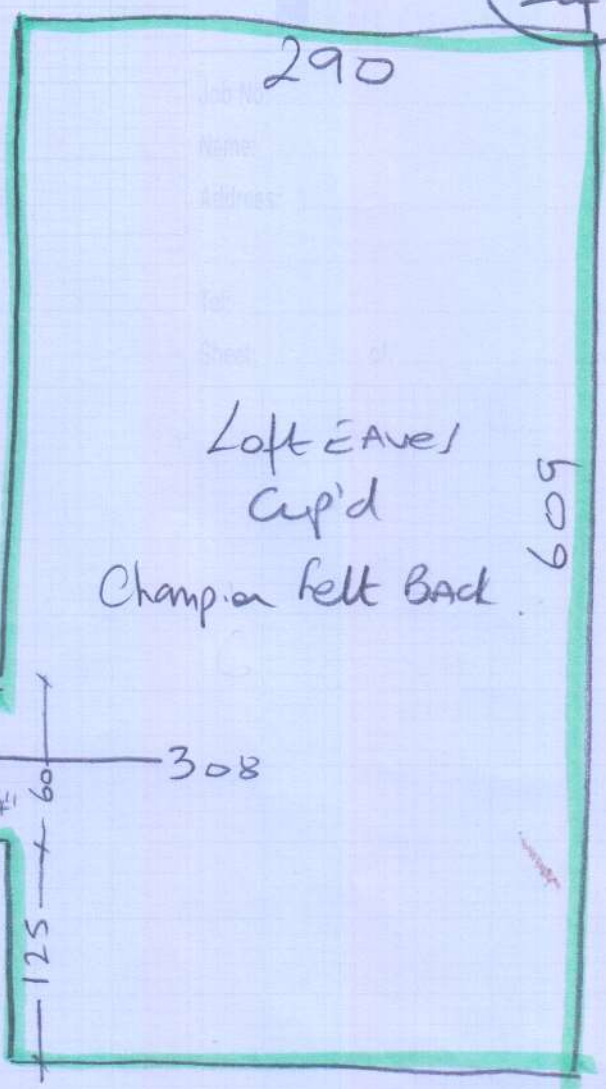 290
Job No:
Name:
Address:
Tel:
Sheet: of
Loft EAves
Cup'd
Champion Felt BAck.
609
308
60
125